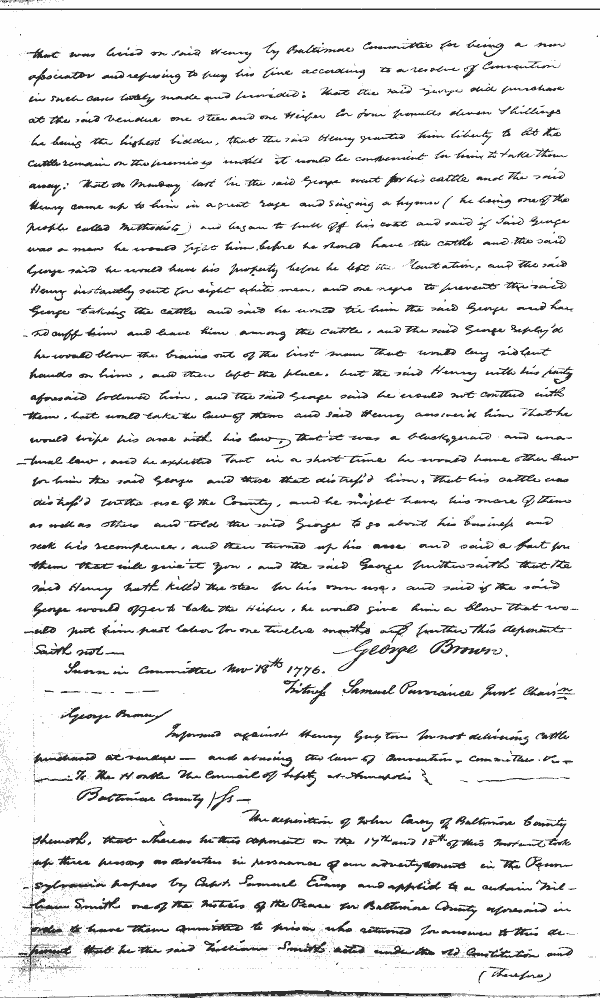 that was levied on said Henry by Baltimore Committee for being a non
associator and refusing to pay his fine according to a resolve of Convention
in such cases lately made and provided: That the said George did purchase
at the said Vendue one steer and one Heifer for four pounds eleven Shillings
he being the highest bidder, that the said Henry granted him liberty to let the
Cattle remain on the premises untill it would be convenient for him to take them
away: That on Monday last he the said George went for his cattle and the said
Henry came up to him in a great rage and singing a hymn (he being one of the
people called Methodists) and began to pull off his coat and said if said George
was a man he would fight him before he should have the cattle and the said
George said he would have his property before he left the Plantation, and the said
Henry instantly sent for eight white men, and one negro to prevent the said
George taking the cattle and said he would tie him the said George and han
-dcuff him and leave him among the Cattle, and the said George reply'd
he would blow the brains out of the first man that would lay violent
hands on him, and then left the place, but the said Henry with his party
aforesaid followed him, and the said George said he would not contend with
them, but would take the law of them and said Henry answer'd him That he
would wipe his arse with his law, that it was a blackguard and una-
-tural law, and he expected that in a short time he would have other law
for him the said George and those that distress'd him, that his cattle was
distress'd for the use of the County, and he might have his share of them
as well as others and told the said George to go about his business and
seek his recompence, and then turned up his arse and said a fart for
them that will give it you, and the said George further saith that the
said Henry hath kill'd the steer for his own use, and said if the said
George would offer to take the Heifer, he would give him a blow that wo-
-uld put him past labor for one twelve months and further this deponent
Saith not— George Brown.
Sworn in Committee Nov 18th 1776.
Witness Samuel Purviance Junr. Chairn
George Brown
Informed against Henry Guyton for not delivering cattle
purchased at vendue — and abusing the law of Convention, Committee &c—
To the Honble The Council of Safety at Annapolis
Baltimore County Ss—
The deposition of John Carey of Baltimore County
Sheweth, that whereas he this deponent on the 17th and 18th of this Instant took
up three persons as deserters in persuance of an advertisement in the Penn-
-sylvania papers by Capt. Samuel Evans and applied to a certain Wil-
-liam Smith one of the Justices of the Peace for Baltimore County aforesaid in
order to have them committed to prison who returned for answer to this de-
ponent that he the said William Smith acted under the old Constitution and
(Therefore)